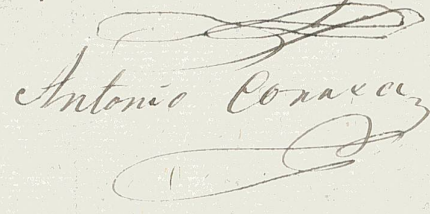 Antonio Conaxa